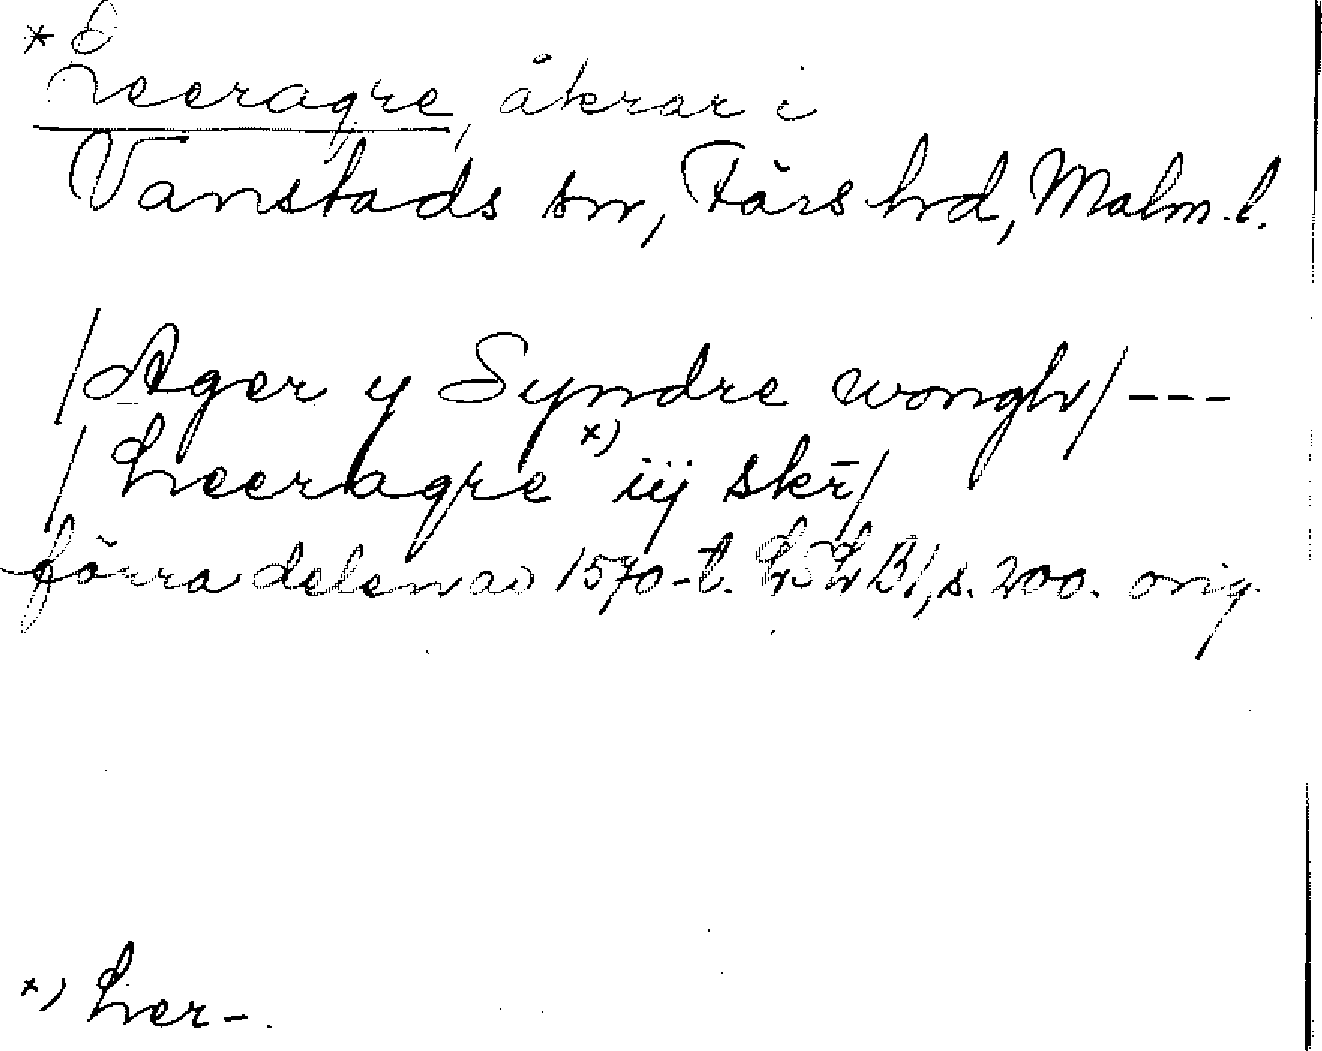 * Leeragre, åkrar i
Vanstads sn, Färs hd, Malm. l.
/Ager y Syndre wongh/ ---
/Leeragre x) iij skr̄/
förra delen av 1570-t. LSLB1, s. 200. orig.
x) Leer-.